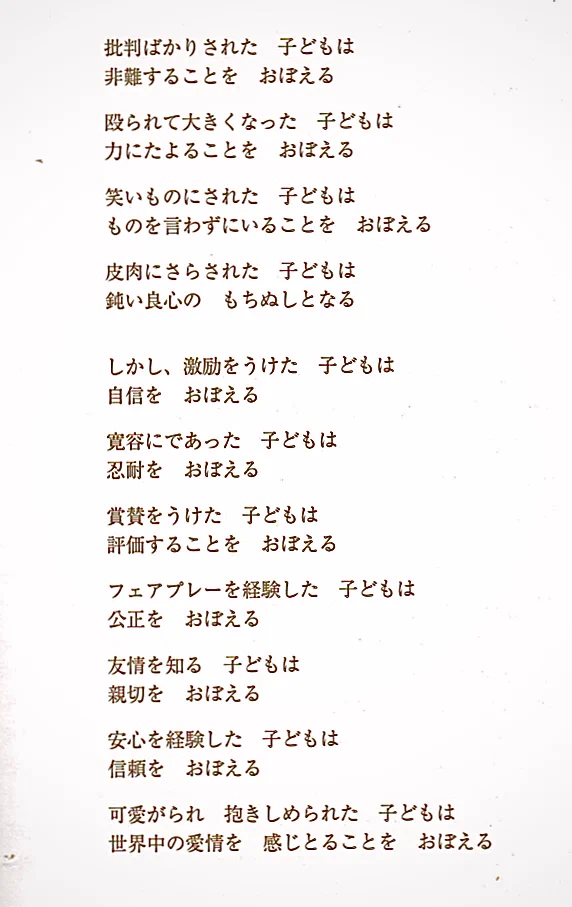 批判ばかりされた　子どもは
非難することを　おぼえる
殴られて大きくなった　子どもは
力にたよることを　おぼえる
笑いものにされた　子どもは
ものを言わずにいることを　おぼえる
皮肉にさらされた　子どもは
鈍い良心の　もちぬしとなる
しかし、激励をうけた　子どもは
自信を　おぼえる
寛容にであった　子どもは
忍耐を　おぼえる
賞賛をうけた　子どもは
評価することを　おぼえる
フェアプレーを経験した　子どもは
公正を　おぼえる
友情を知る　子どもは
親切を　おぼえる
安心を経験した　子どもは
信頼を　おぼえる
可愛がられ　抱きしめられた　子どもは
世界中の愛情を　感じとることを　おぼえる